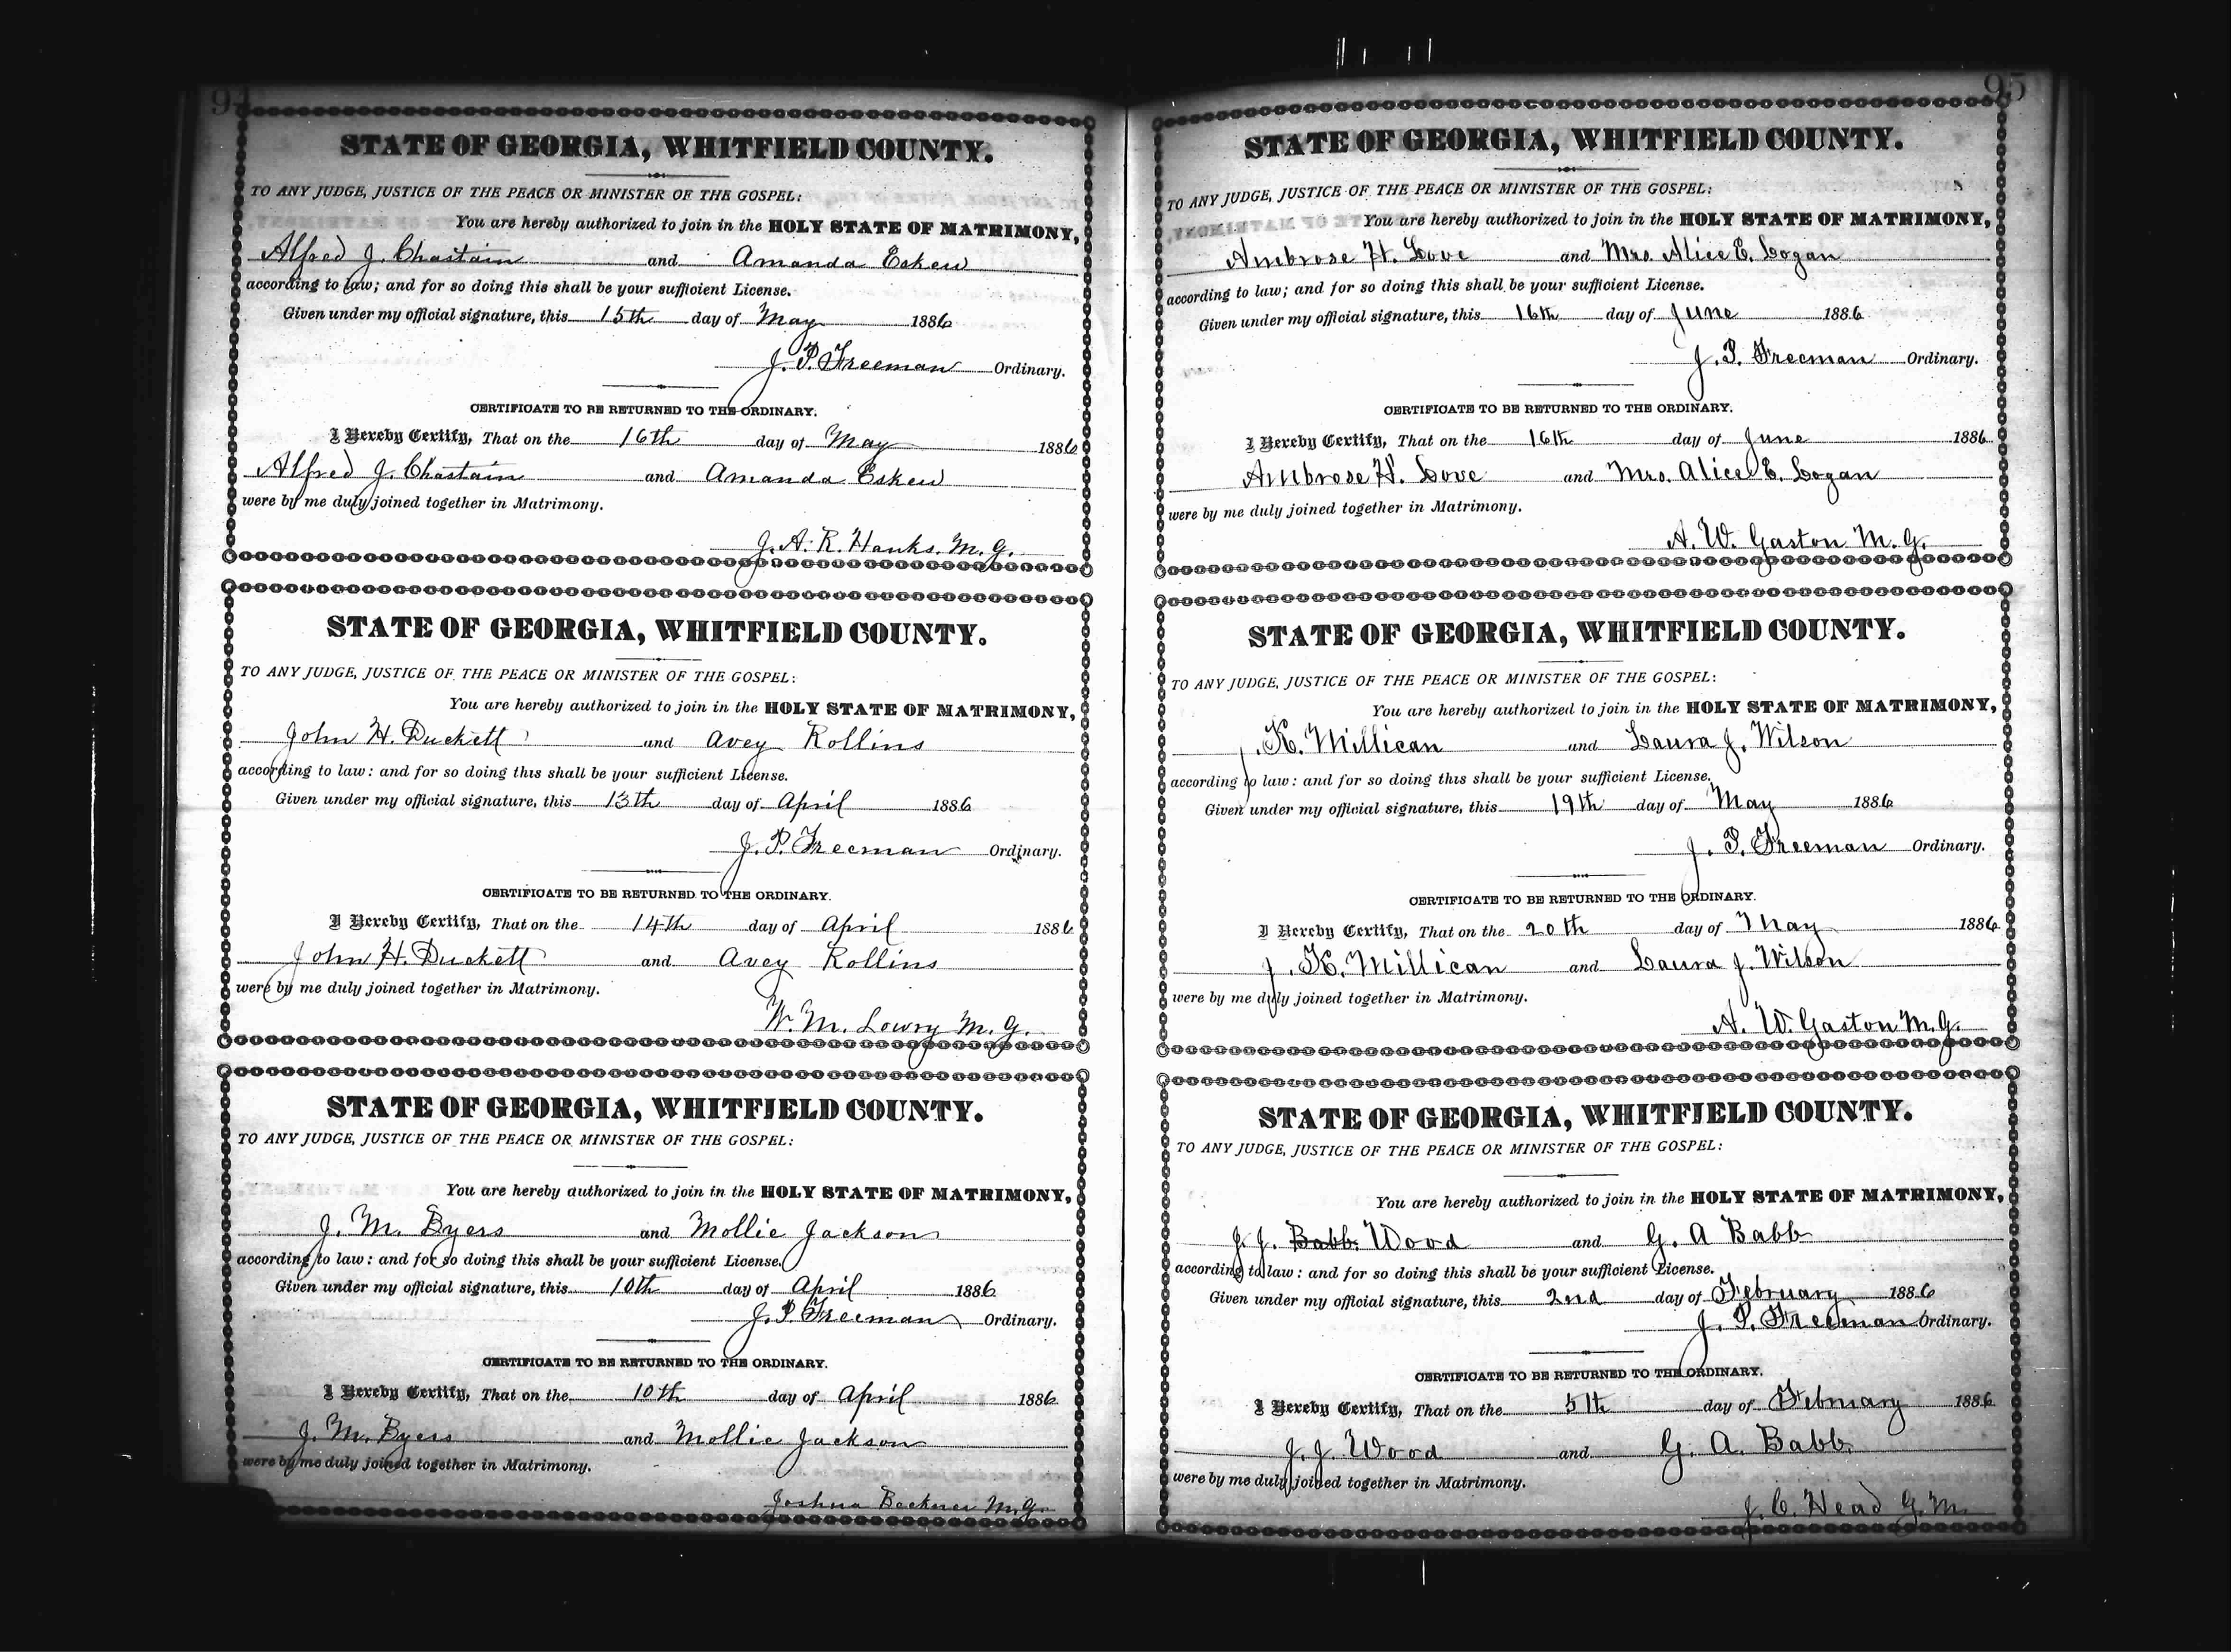 94
STATE OF GEORGIA, WHITFIELD COUNTY.
TO ANY JUDGE, JUSTICE OF THE PEACE OR MINISTER OF THE GOSPEL:
You are hereby authorized to join in the HOLY STATE OF MATRIMONY,
Alfred J. Chastain and Amanda Eskew
according to law; and for so doing this shall be your sufficient License.
Given under my official signature, this 15th day of May 1886
J. P. Freeman Ordinary.
CERTIFICATE TO BE RETURNED TO THE ORDINARY.
I Hereby Certify, That on the 16th day of May 1886
Alfred J. Chastain and Amanda Eskew
were by me duly joined together in Matrimony.
J. A. R. Hanks. M. G.
STATE OF GEORGIA, WHITFIELD COUNTY.
TO ANY JUDGE, JUSTICE OF THE PEACE OR MINISTER OF THE GOSPEL:
You are hereby authorized to join in the HOLY STATE OF MATRIMONY,
John H. Duckett and Avey Rollins
according to law: and for so doing this shall be your sufficient License.
Given under my official signature, this 13th day of April 1886
J. P. Freeman Ordinary.
CERTIFICATE TO BE RETURNED TO THE ORDINARY.
I Hereby Certify, That on the 14th day of April 1886
John H. Duckett and Avey Rollins
were by me duly joined together in Matrimony.
W. M. Lowry M. G.
STATE OF GEORGIA, WHITFIELD COUNTY.
TO ANY JUDGE, JUSTICE OF THE PEACE OR MINISTER OF THE GOSPEL:
You are hereby authorized to join in the HOLY STATE OF MATRIMONY,
J. M. Byers and Mollie Jackson
according to law: and for so doing this shall be your sufficient License.
Given under my official signature, this 10th day of April 1886
J. P. Freeman Ordinary.
CERTIFICATE TO BE RETURNED TO THE ORDINARY.
I Hereby Certify, That on the 10th day of April 1886
J. M. Byers and Mollie Jackson
were by me duly joined together in Matrimony.
Joshua M. G.
95
STATE OF GEORGIA, WHITFIELD COUNTY.
TO ANY JUDGE, JUSTICE OF THE PEACE OR MINISTER OF THE GOSPEL:
You are hereby authorized to join in the HOLY STATE OF MATRIMONY,
Ambrose H. Love and Mrs. Alice E. Logan
according to law; and for so doing this shall be your sufficient License.
Given under my official signature, this 16th day of June 1886
J. P. Freeman Ordinary.
CERTIFICATE TO BE RETURNED TO THE ORDINARY.
I Hereby Certify, That on the 16th day of June 1886
Ambrose H. Love and Mrs. Alice E. Logan
were by me duly joined together in Matrimony.
A. W. Gaston M. G.
STATE OF GEORGIA, WHITFIELD COUNTY.
TO ANY JUDGE, JUSTICE OF THE PEACE OR MINISTER OF THE GOSPEL:
You are hereby authorized to join in the HOLY STATE OF MATRIMONY,
J. K. Millican and Laura J. Wilson
according to law: and for so doing this shall be your sufficient License.
Given under my official signature, this 19th day of May 1886
J. P. Freeman Ordinary.
CERTIFICATE TO BE RETURNED TO THE ORDINARY.
I Hereby Certify, That on the 20th day of May 1886
J. K. Millican and Laura J. Wilson
were by me duly joined together in Matrimony.
A. W. Gaston M. G.
STATE OF GEORGIA, WHITFIELD COUNTY.
TO ANY JUDGE, JUSTICE OF THE PEACE OR MINISTER OF THE GOSPEL:
You are hereby authorized to join in the HOLY STATE OF MATRIMONY,
J. J. Babb. Wood and G. A Babb
according to law: and for so doing this shall be your sufficient License.
Given under my official signature, this 2nd day of February 1886
J. P. Freeman Ordinary.
CERTIFICATE TO BE RETURNED TO THE ORDINARY.
I Hereby Certify, That on the 5th day of February 1886
J. J. Wood and G. A. Babb.
were by me duly joined together in Matrimony.
J. C. Head G. M.